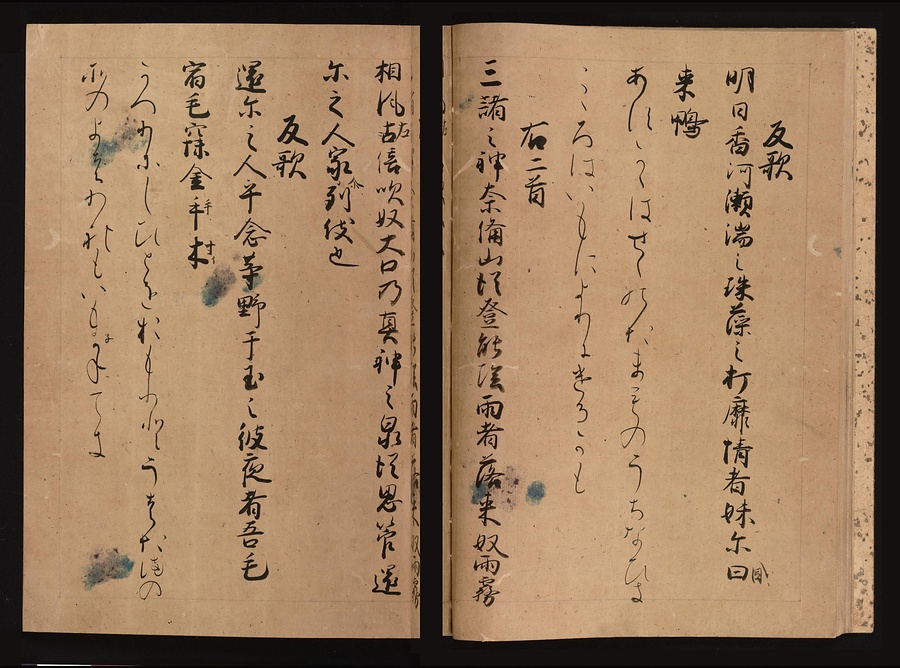 反歌
明日香河瀬湍之珠藻之打靡情者妹尓曰因
来鴨
あすかゝはせゝのたまものうちなひき
こゝろはいもによりにけるかも
右二首
三諸之神奈備山従登能陰雨者落来奴雨霧
相風左倍吹奴大口乃真神之原従思管還
尓之人家到伎也
反歌
還尓之人乎念等野干玉之彼夜者吾毛
宿毛寐金手木
かへりにしひとをおもふとうはたまの
そのよはわれもいもね